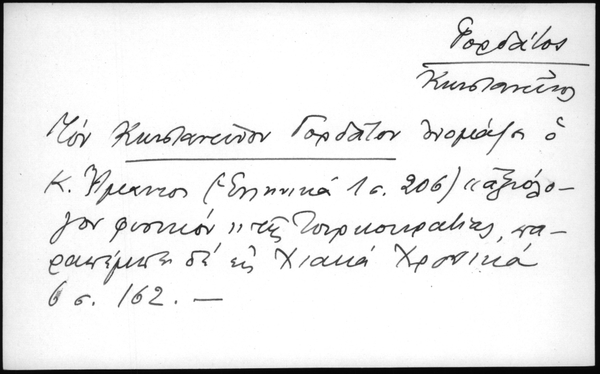 Γορδάτος
Κωνσταντῖνος
Τόν Κωνσταντῖνον Γορδάτον ὀνομάζει ὁ
Κ. Ἄμαντος (Ἑλληνικά 1 σ. 206) «ἀξιόλο-
γον φυσικόν» τῆς Τουρκοκρατίας, πα-
ραπέμπει δέ εἰς Χιακά Χρονικά
6 σ. 162. —